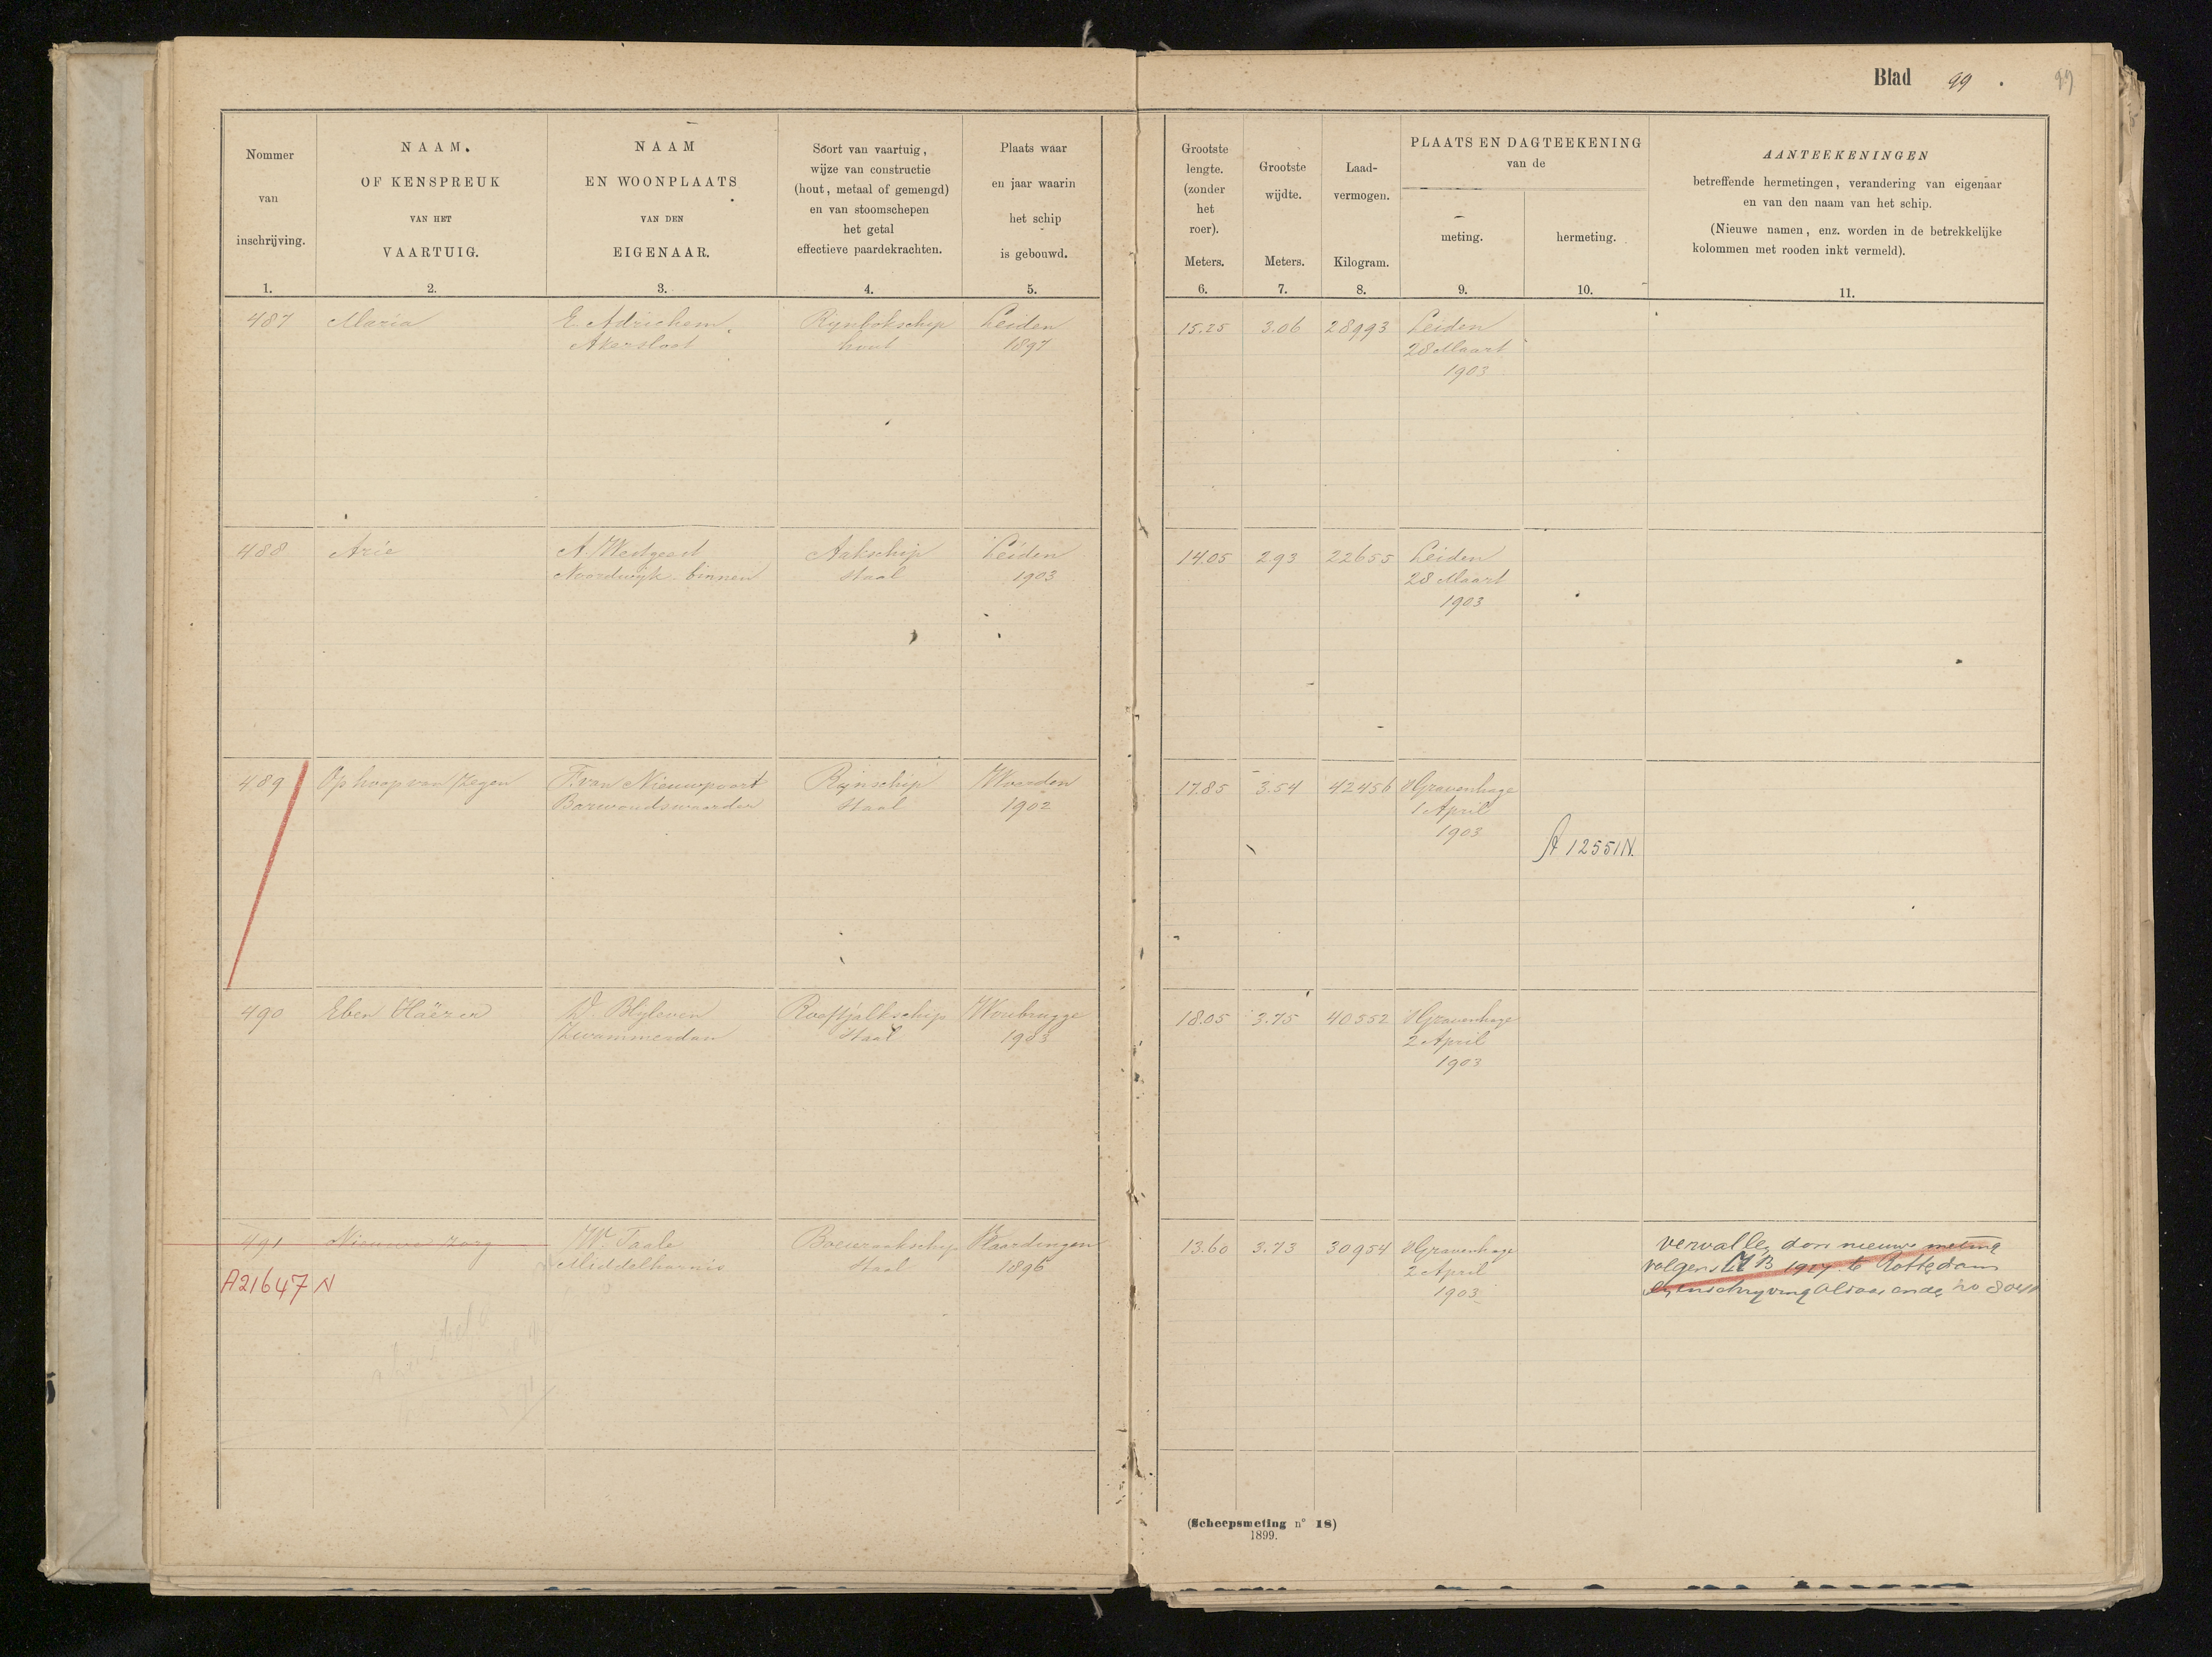 Blad 99. 99
Nommer van inschrijving.
1.
NAAM.
OF KENSPREUK
VAN HET
VAARTUIG.
2.
NAAM
EN WOONPLAATS
VAN DEN
EIGENAAR.
3.
Soort van vaartuig,
wijze van constructie
(hout, metaal of gemengd)
en van stoomschepen
het getal
effectieve paardekrachten.
4.
Plaats waar
en jaar waarin
het schip
is gebouwd.
5.
Grootste
lengte.
(zonder
het
roer).
Meters.
6.
Grootste
wijdte.
Meters.
7.
Laad-
vermogen.
Kilogram.
8.
PLAATS EN DAGTEEKENING
van de
meting.
9.
hermeting.
10.
AANTEEKENINGEN
betreffende hermetingen, verandering van eigenaar
en van den naam van het schip.
(Nieuwe namen, enz. worden in de betrekkelijke
kolommen met rooden inkt vermeld).
11.
487 Maria E. Adrichem. Rijnbokschip Leiden 15.25 3.06 28993 Leiden
Akersloot hout 1897 28 Maart
1903
488 Arie A. Westgeest Aakschip Leiden 14.05 293 22655 Leiden
Noordwijk-binnen Staal 1903 28 Maart
1903
489 Op hoop van Zegen F. van Nieuwpoort Rijnschip Woerden 17.85 3.54 42456 'sGravenhage
Barwoudswaarder Staal 1902 1 April
1903
A 12551N.
490 Eben Haëzer D. Blijleven Rooftjalkschip Woubrugge 18.05 3.75 40552 'sGravenhage
Zwammerdam Staal 1903 2 April
1903
491 Nieuwe Zorg W. Taale Boeieraakschip Vlaardingen 13.60 3.73 30954 'sGravenhage
Middelharnis Staal 1896 2 April
1903
A21647 N
vervallen door nieuwe meting
volgens MB 1927 te Rotterdam
inschryving aldaar onder no
(Scheepsmeting n° 18)
1899.